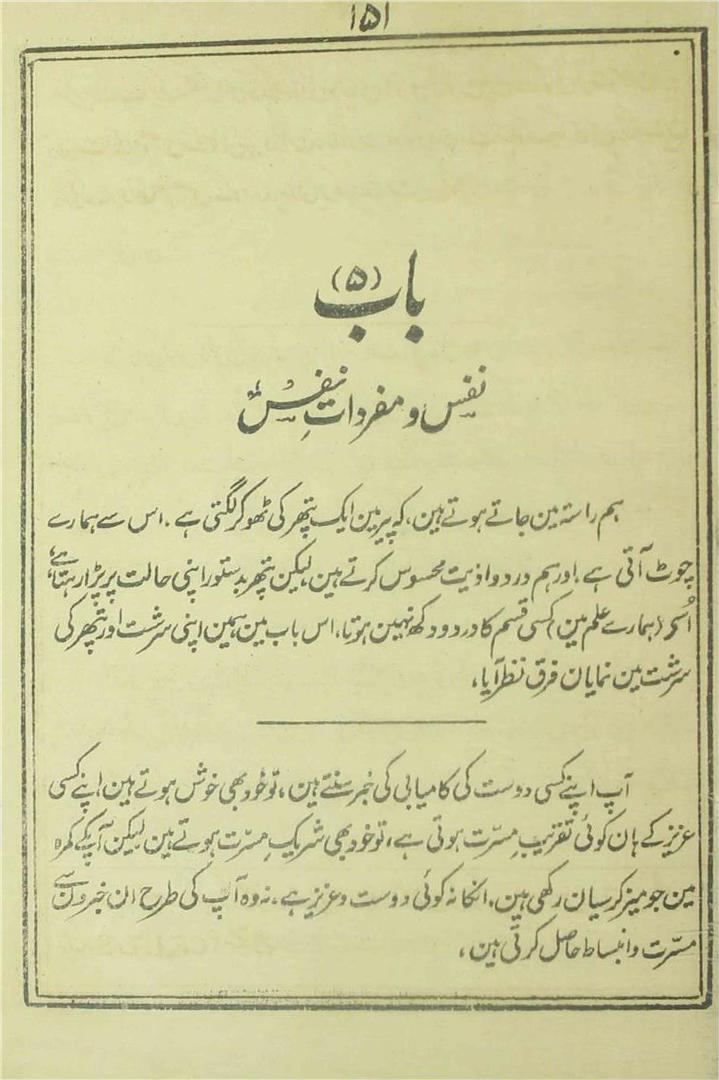 ۱۵۱
باب (۵)
نفس و مفرداتِ نفس
ہم راستہ مین جاتے ہوتے ہین، کہ پیر مین ایک پتھر کی ٹھوکر لگتی ہے۔ اس سے ہمارے
چوٹ آتی ہے۔ اور ہم درد و اذیت محسوس کرتے ہین، لیکن پتھر بدستور اپنی حالت پر پڑا رہتا ہے،
اُسکو (ہمارے علم مین) کسی قسم کا درد و دکھ نہین ہوتا، اس باب مین ہمین اپنی سرشت اور پتھر کی
سرشت مین نمایان فرق نظر آیا،
آپ اپنے کسی دوست کی کامیابی کی خبر سنتے ہین، تو خود بھی خوش ہوتے ہین اپنے کسی
عزیز کے ہان کوئی تقریبِ مسرّت ہوتی ہے، تو خود بھی شریکِ مسرّت ہوتے ہین لیکن آپکے کمرہ
مین جو میز کرسیان رکھی ہین۔ انکا نہ کوئی دوست و عزیز ہے۔ نہ وہ آپ کی طرح ان خبرون سے
مسرّت و انبساط حاصل کرتی ہین،